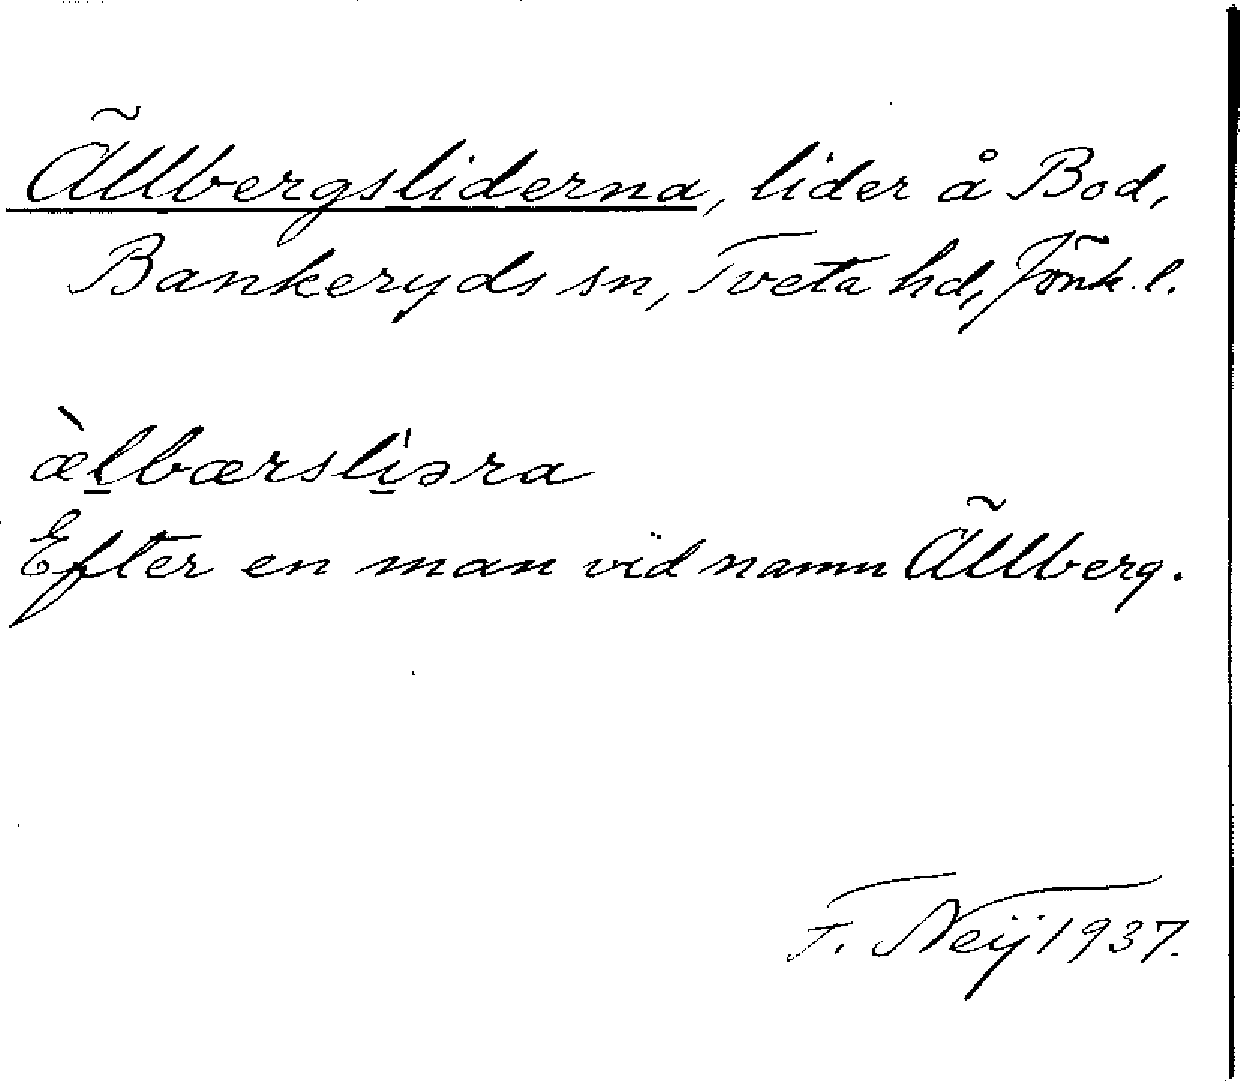 Ällbergsliderna, lider å Bod,
Bankeryds sn, Tveta hd, Jönk. l.
æ̀l̠bærslìər̠a
Efter en man vid namn Ällberg.
F. Neij 1937.